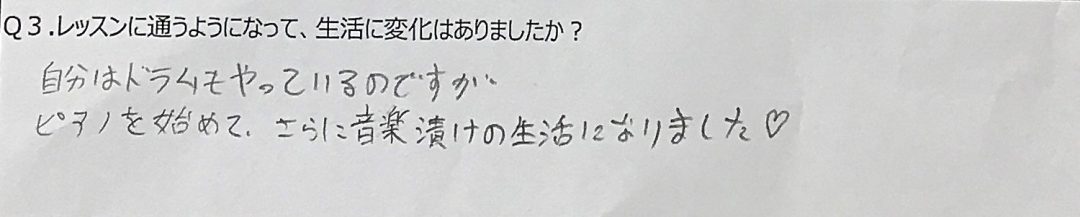 Q3.レッスンに通うようになって、生活に変化はありましたか?
自分はドラムもやっているのですが、
ピアノを始めて、さらに音楽漬けの生活になりました♡